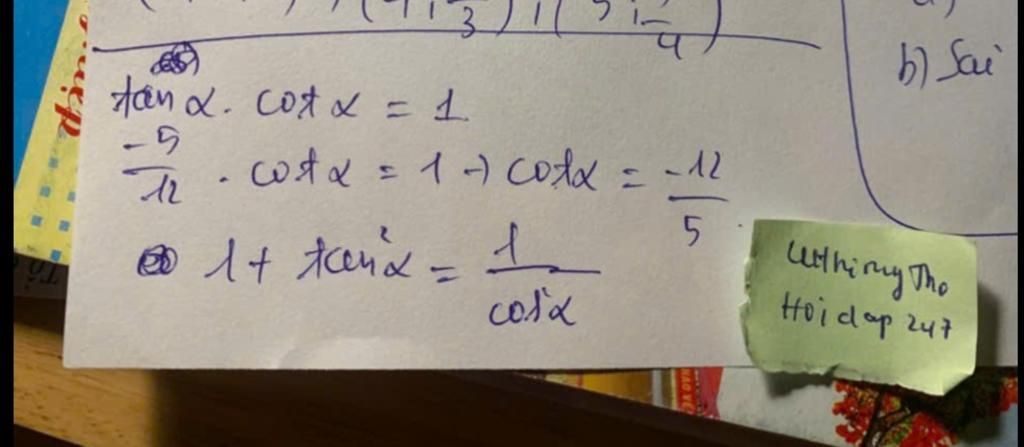 b) Sai
tan α . cot α = 1
-5/12 . cot α = 1 → cot α = -12/5
1 + tan²α = 1/cos²α
Hoidap 247